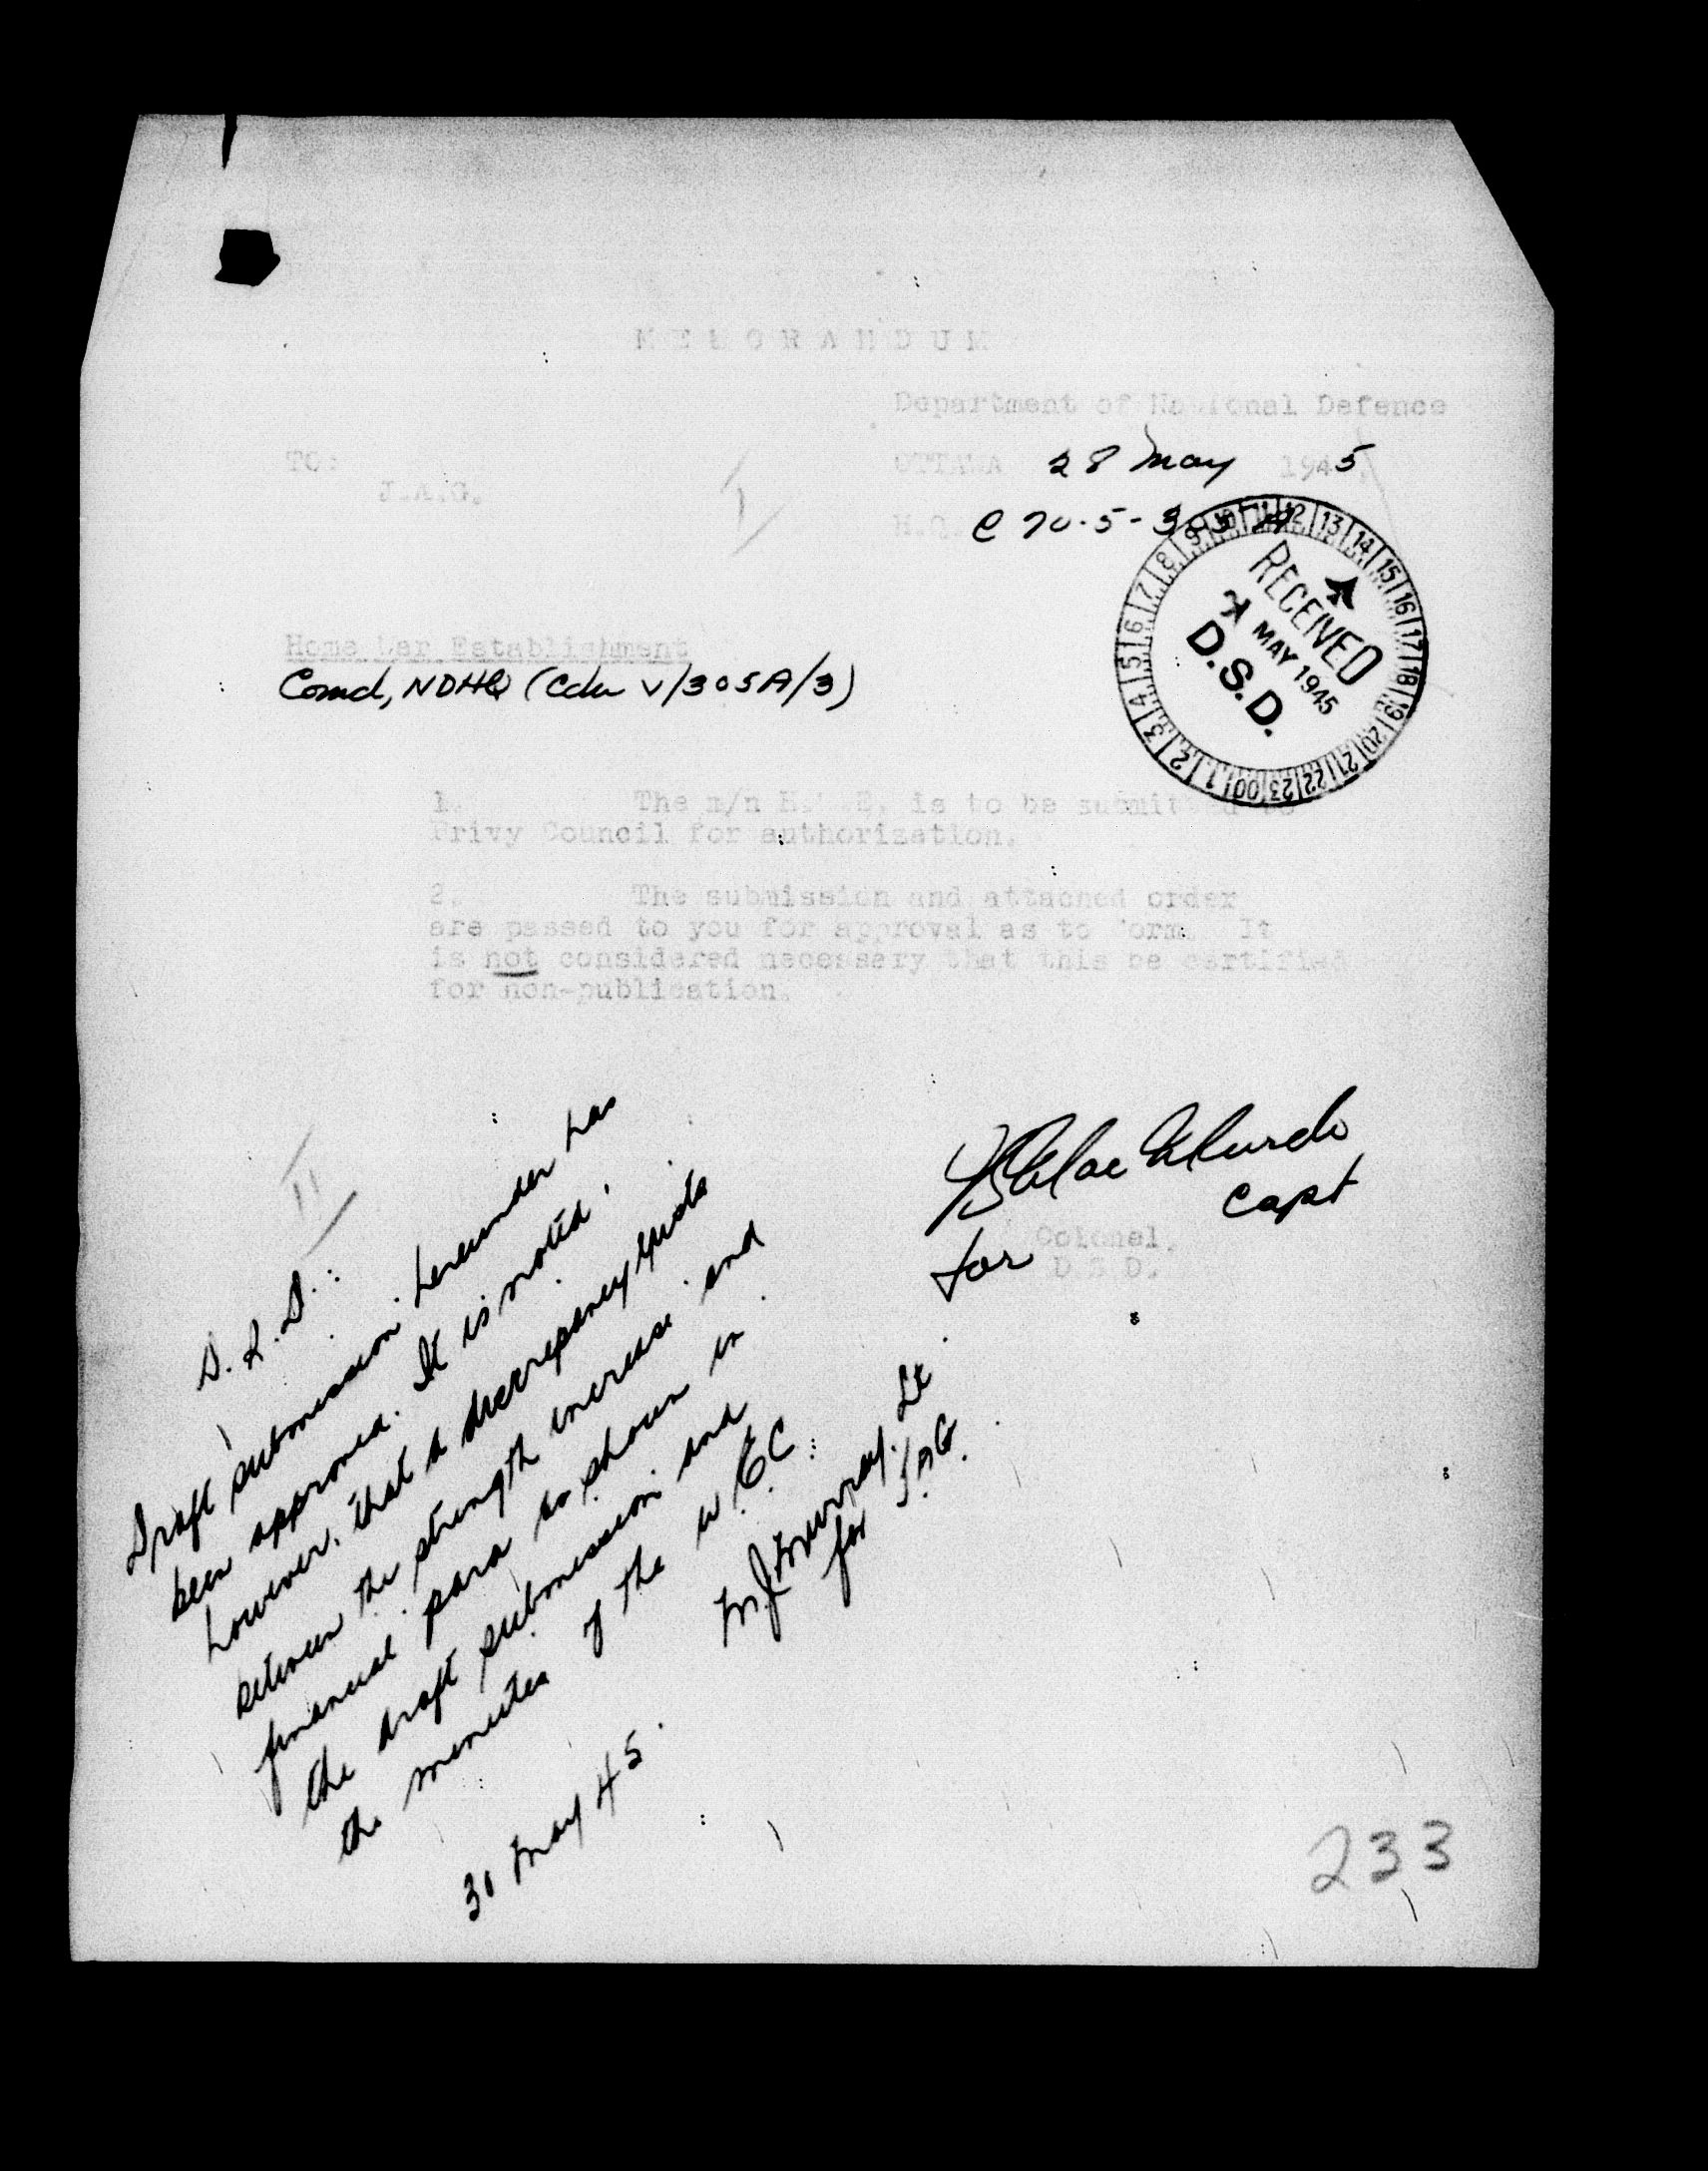 MEMORANDUM
Department of National Defence
TO:
OTTAWA 28 May 1945
J.A.G.
I
H.Q. C 70-5-305 A
RECEIVED
MAY 1945
D.S.D.
9 10 11 12 13 14 15 16 17 18 19 20 21 22 23 00 1 2 3 4 5 6 7 8
Home War Establishment
Comd, NDHQ (Cdn V/305A/3)
1. The m/n H.W.E. is to be submitted to
Privy Council for authorization.
2. The submission and attached order
are passed to you for approval as to form. It
is not considered necessary that this be certified
for non-publication.
Capt
for Colonel,
D.S.D.
II
D.S.D.:
Draft submission hereunder has
been approved. It is noted,
however, that a discrepancy exists
between the strength increase and
financial para as shown in
the draft submission and
the minutes of the W.E.C.
M J Murray. Lt
for J.A.G.
30 May 45.
233